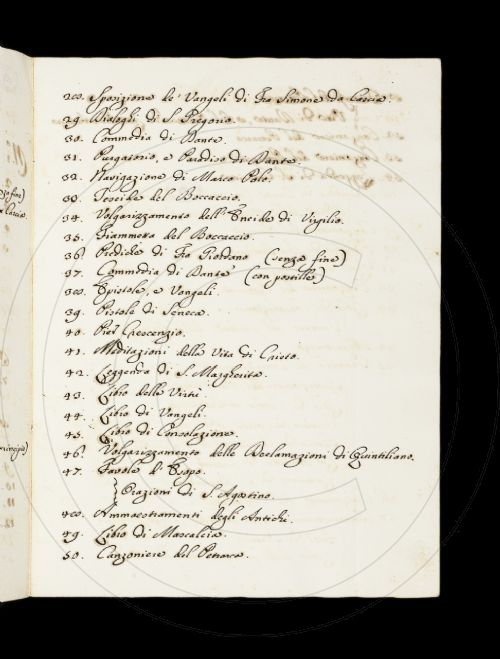 28. Sposizione de' Vangeli di Fra Simone da Cascia
29. Dialoghi di S. Gregorio.
30. Commedia di Dante.
31. Purgatorio, e Paradiso di Dante.
32. Navigazione di Marco Polo.
33. Teseide del Boccaccio.
34. Volgarizzamento dell' Eneide di Virgilio.
35. Fiammetta del Boccaccio.
36. Prediche di Fra Giordano (senza fine)
37. Commedia di Dante (con postille)
38. Epistole, e Vangeli.
39. Pistole di Seneca.
40. Pier Crescenzio.
41. Meditazioni della Vita di Cristo.
42. Leggenda di S. Margherita.
43. Libro delle Virtù.
44. Libro di Vangeli.
45. Libro di Consolazione.
46. Volgarizzamento delle Declamazioni di Quintiliano.
47. Favole d' Esopo.
Orazioni di S. Agostino.
48. Ammaestramenti degli Antichi.
49. Libro di Mascalcia.
50. Canzoniere del Petrarca.